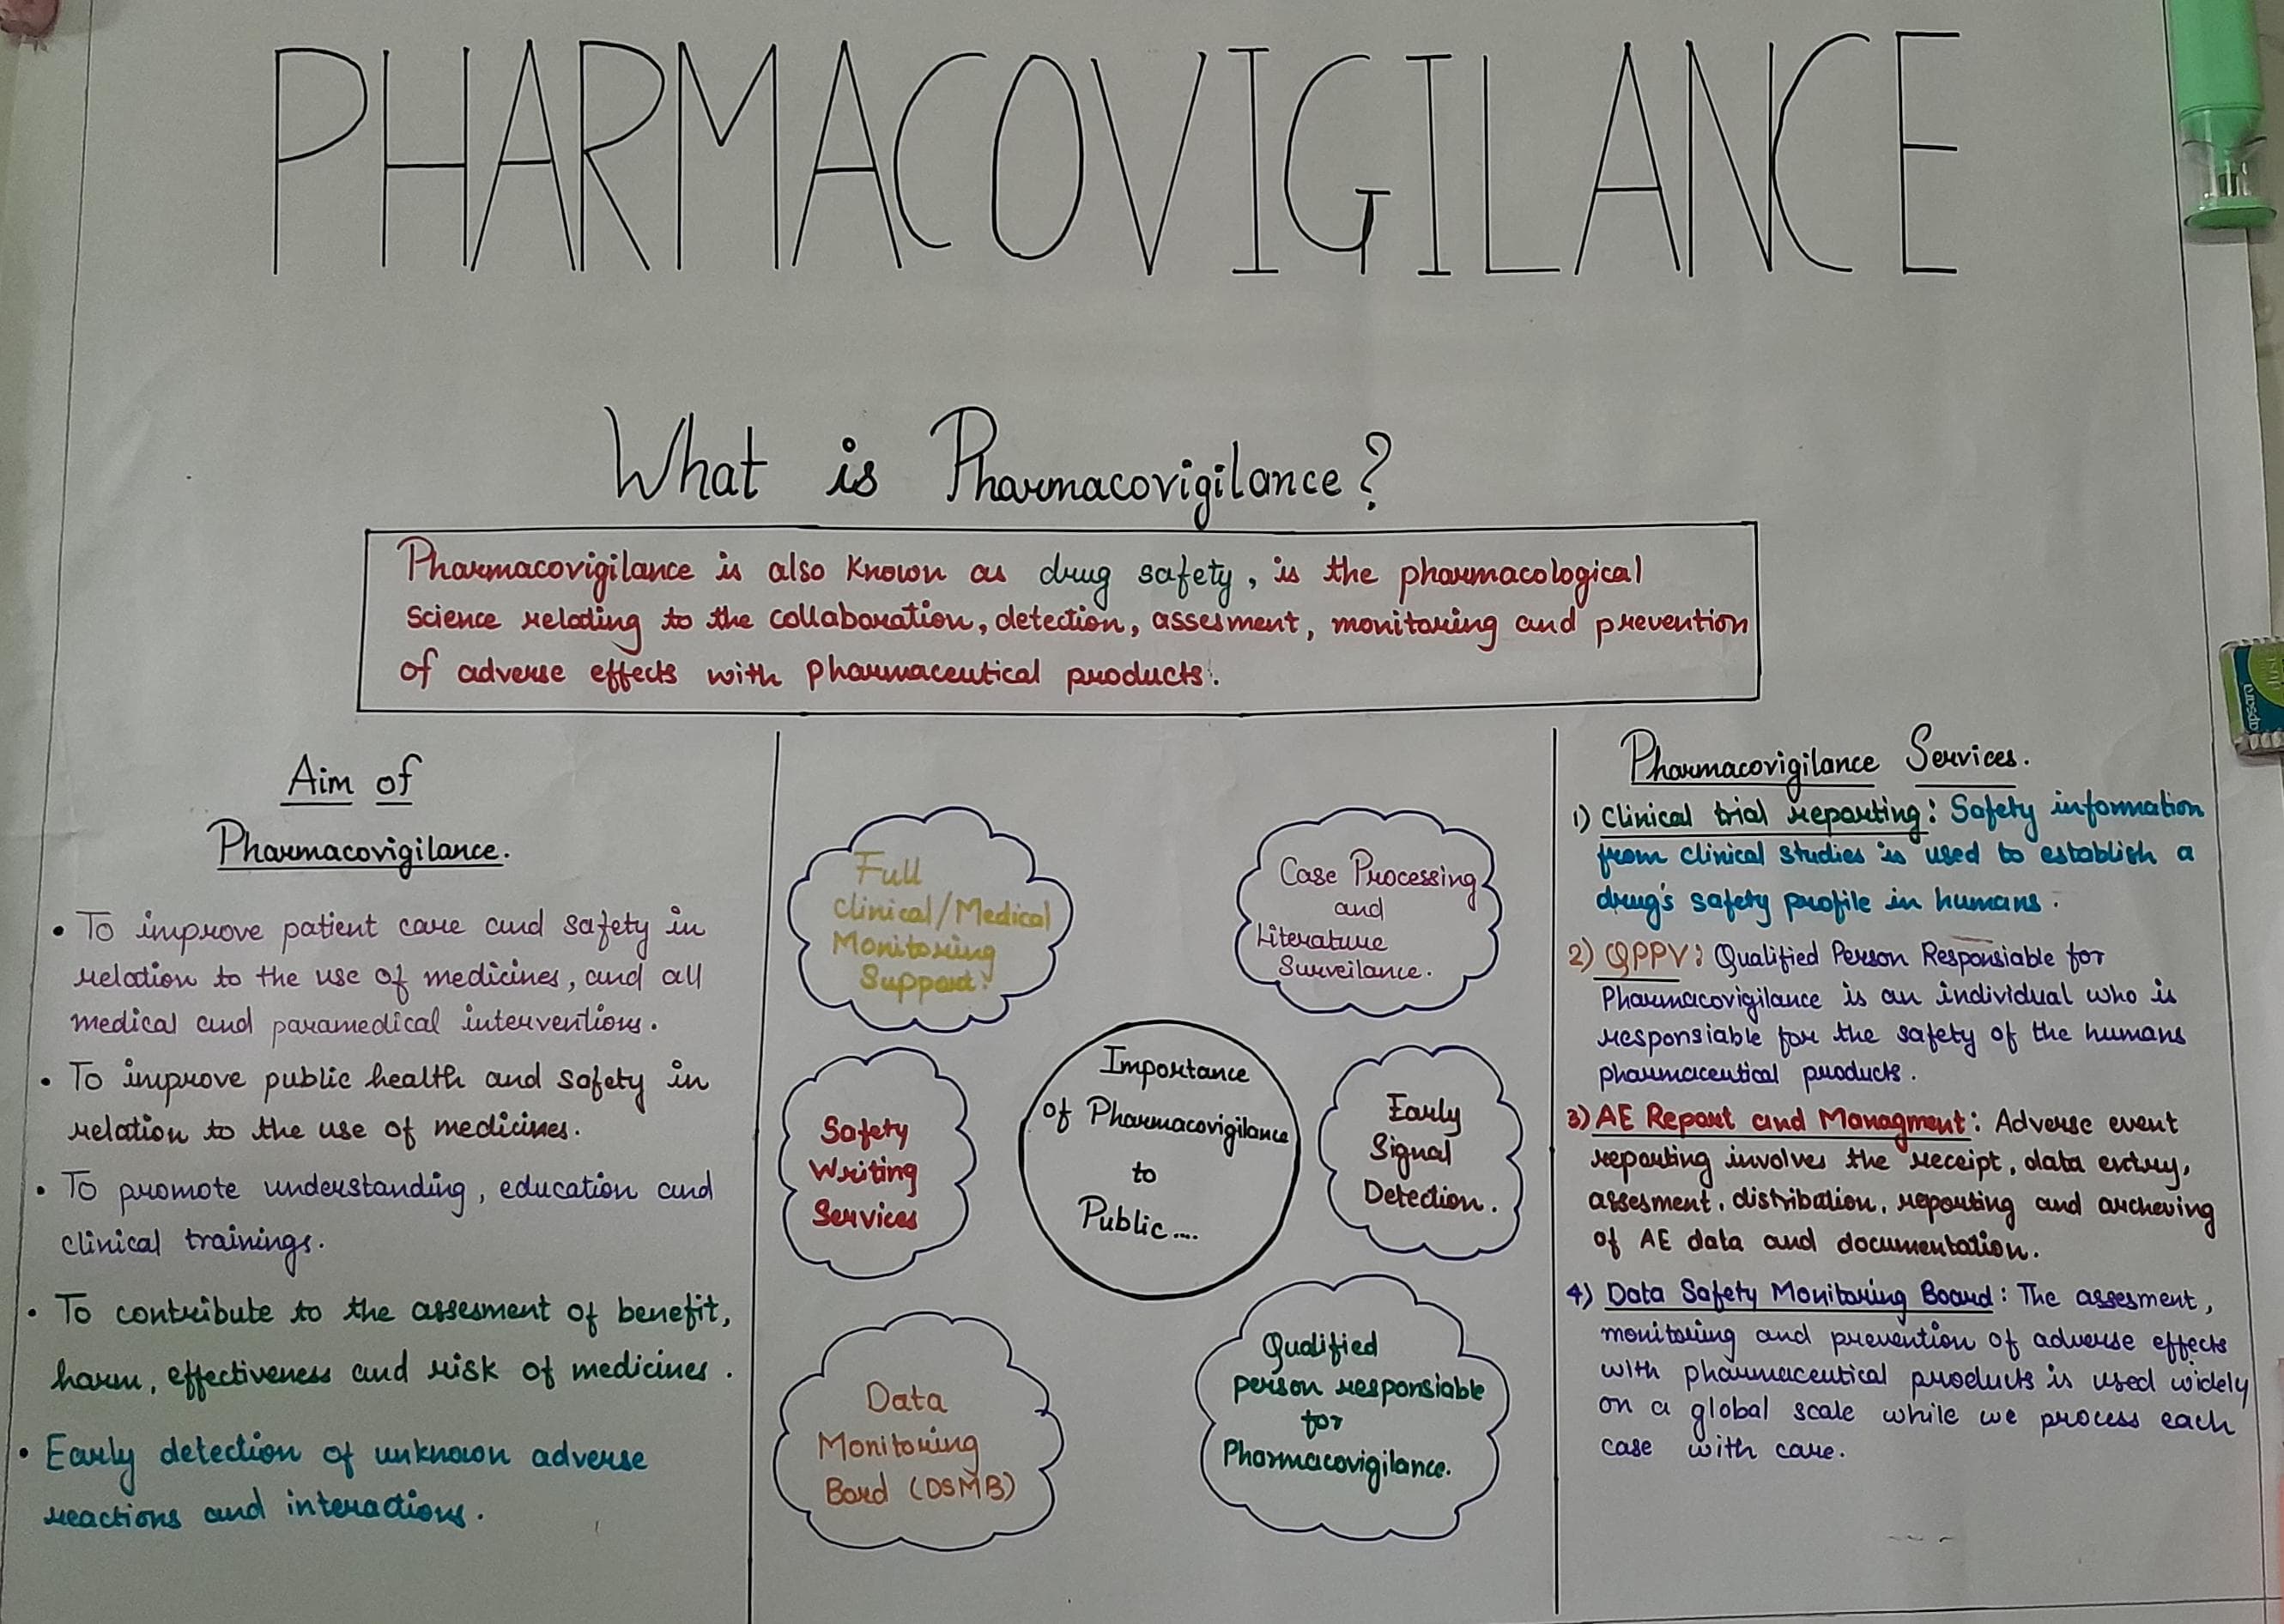 PHARMACOVIGILANCE
What is Pharmacovigilance?
Pharmacovigilance is also Known as drug safety, is the pharmacological
Science relading to the collaboration, detection, assesment, monitoring and prevention
of adverse effects with pharmaceutical products.
Aim of
Pharmacovigilance.
• To improve patient care and safety in
relation to the use of medicines, and all
medical and paramedical interventions.
• To improve public health and safety in
relation to the use of medicines.
• To promote understanding, education and
clinical trainings.
• To contribute to the assesment of benefit,
harm, effectiveness and risk of medicines.
• Early detection of unknown adverse
reactions and interactions.
Full
Clinical/Medical
Monitoring
Support.
Case Processing
and
Literature
Surveilance.
Safety
Writing
Services
Importance
of Pharmacovigilance
to
Public....
Early
Signal
Detection.
Data
Monitoring
Bord (DSMB)
Qualified
person responsiable
for
Pharmacovigilance.
Pharmacovigilance Services.
1) Clinical trial reporting: Safety information
from clinical studies is used to establish a
drug's safety profile in humans.
2) QPPV: Qualified Person Responsiable for
Pharmacovigilance is an individual who is
responsiable for the safety of the humans
pharmaceutical products.
3) AE Report and Managment: Adverse event
reporting involves the receipt, data entry,
assesment, distribution, reporting and archeving
of AE data and documentation.
4) Data Safety Monitoring Board: The assesment,
monitoring and prevention of adverse effects
with pharmaceutical products is used widely
on a global scale while we process each
case with care.
apsara